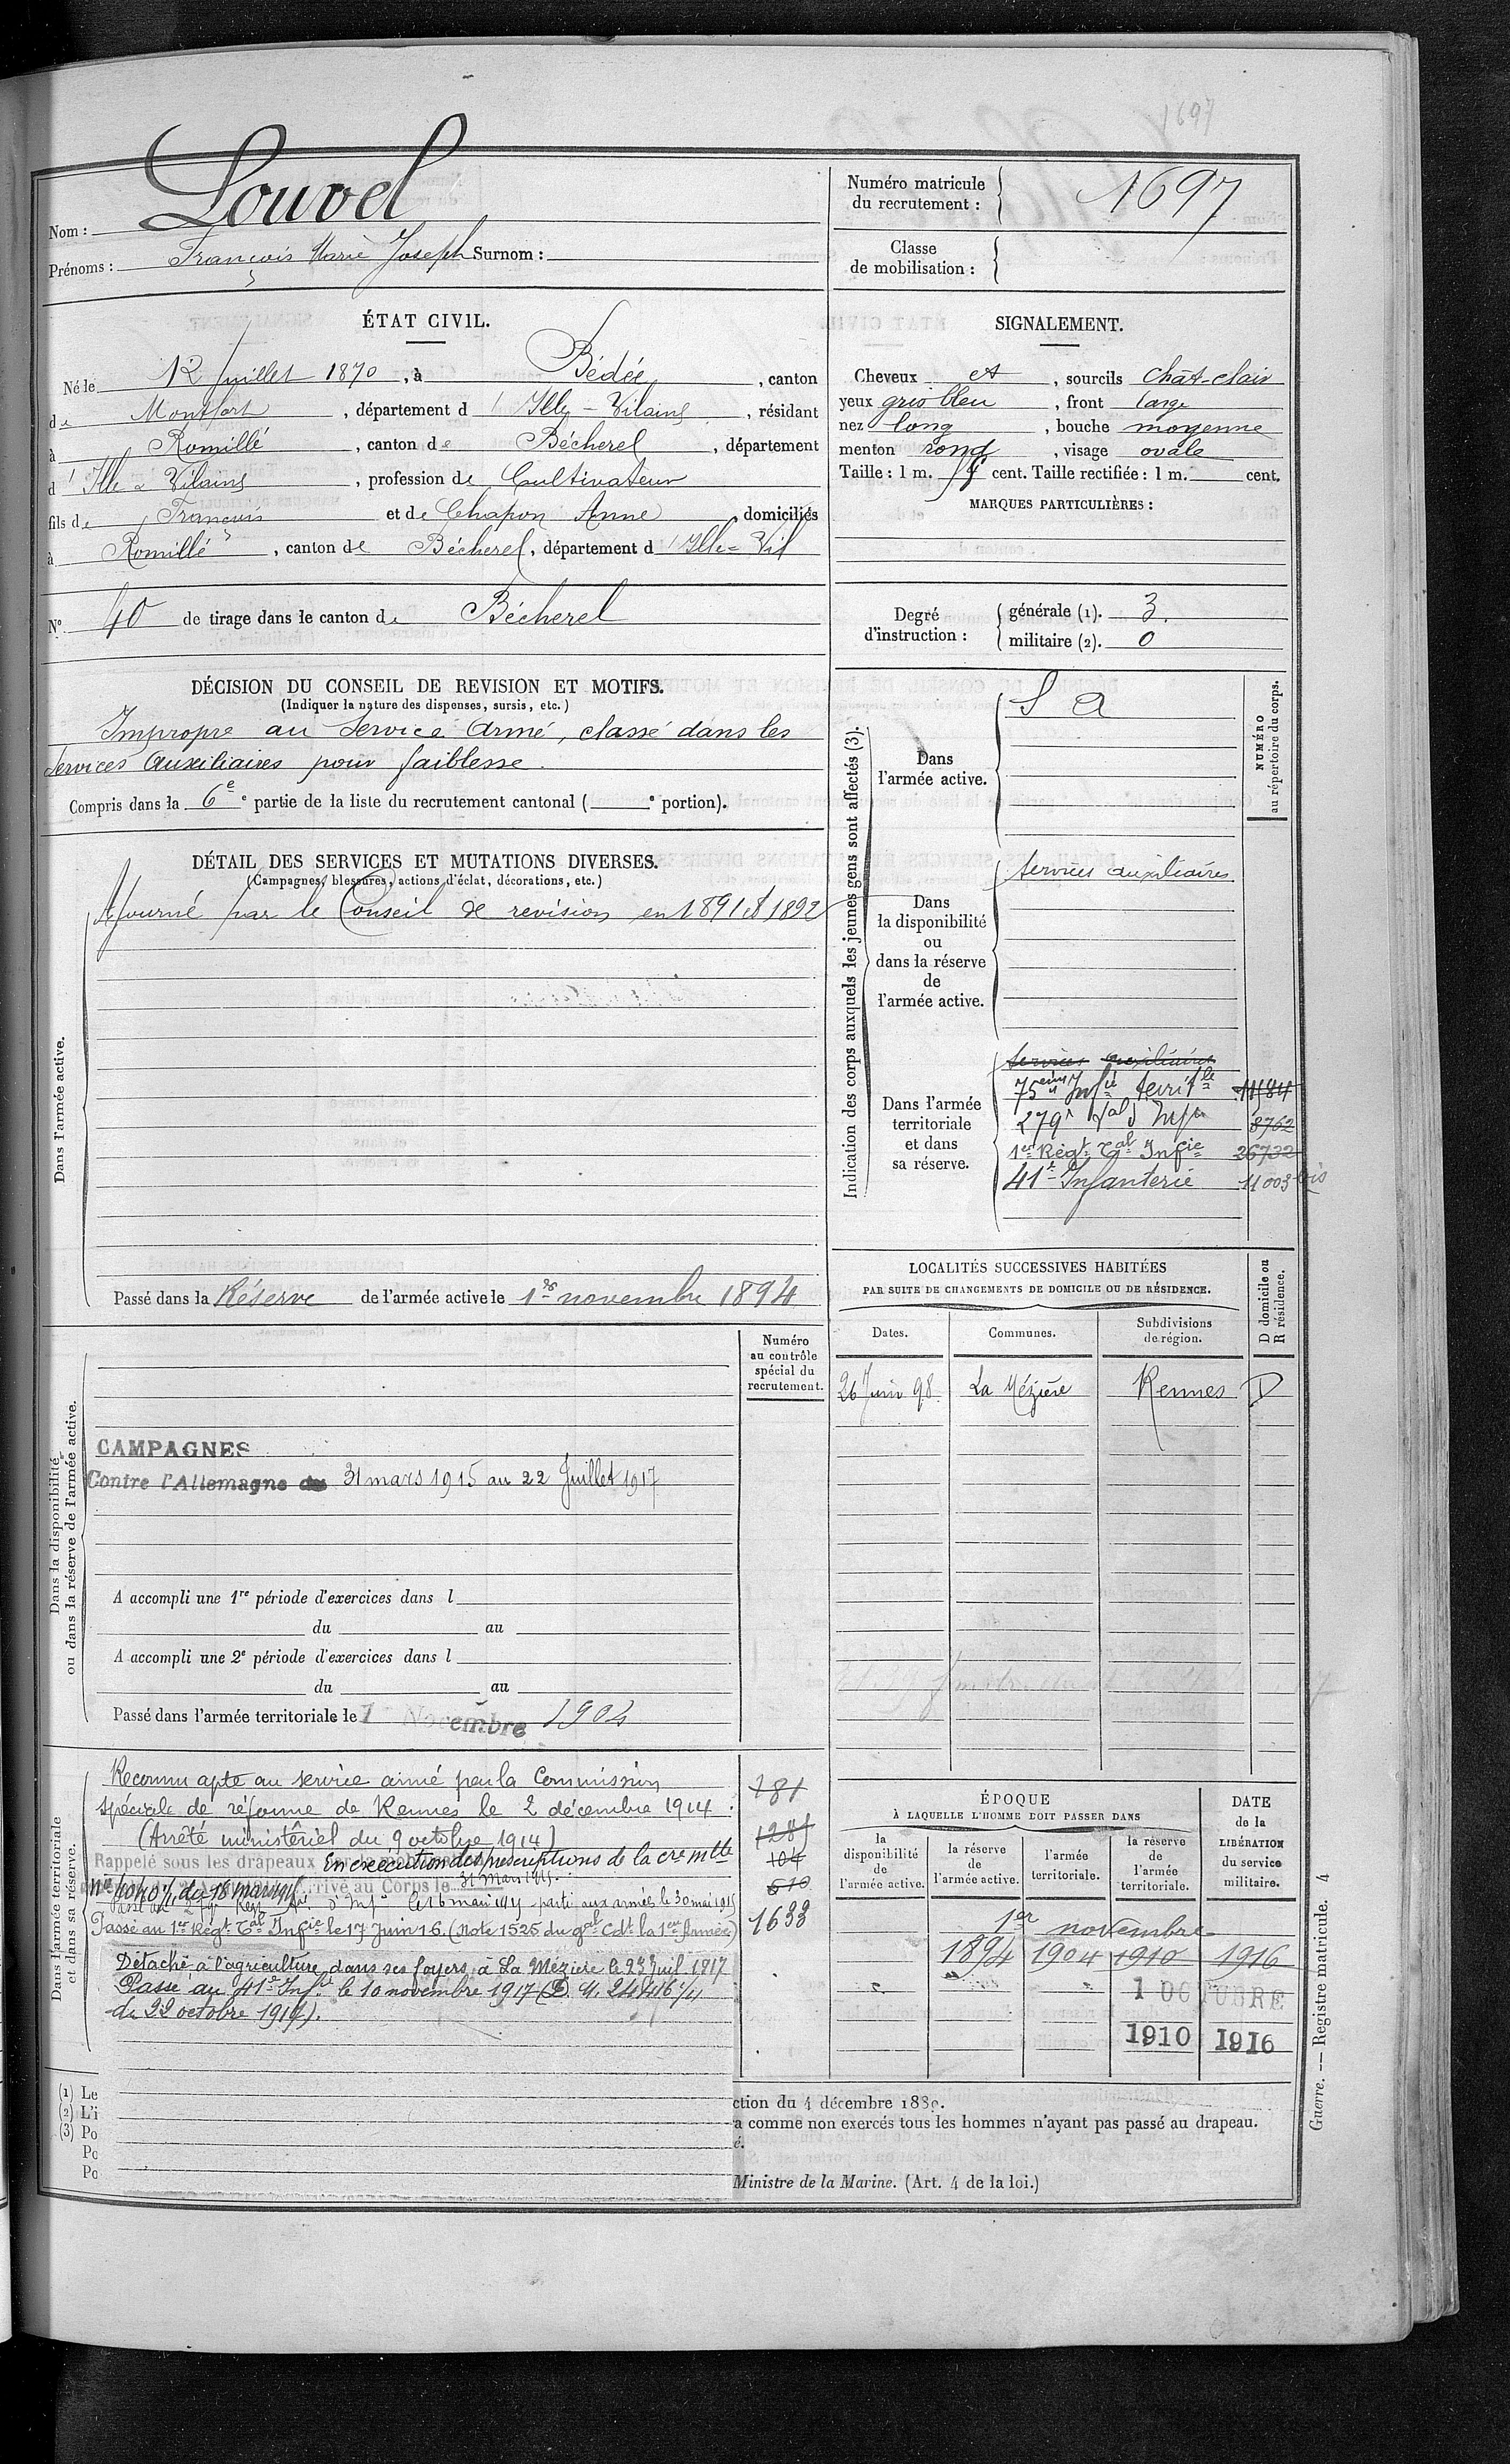 1697
Nom : Louvel
Prénoms : François Marie Joseph Surnom :
Numéro matricule du recrutement : 1697
Classe de mobilisation :
ÉTAT CIVIL.
Né le 12 Juillet 1870, à Bédée, canton
de Montfort, département d'Ille-Vilaine, résidant
à Romillé, canton de Bécherel, département
d'Ille & Vilaine, profession de Cultivateur
fils de François et de Chapon Anne, domiciliés
à Romillé, canton de Bécherel, département d'Ille-Vil
N° 40 de tirage dans le canton de Bécherel
SIGNALEMENT.
Cheveux et, sourcils chât-clair
yeux gris bleu, front large
nez long, bouche moyenne
menton rond, visage ovale
Taille : 1 m. 54 cent. Taille rectifiée : 1 m. cent.
MARQUES PARTICULIÈRES :
Degré d'instruction : générale (1). 3.
militaire (2). 0
DÉCISION DU CONSEIL DE REVISION ET MOTIFS.
(Indiquer la nature des dispenses, sursis, etc.)
Impropre au Service Armé, classé dans les
Services Auxiliaires pour faiblesse.
Compris dans la 6e e partie de la liste du recrutement cantonal ( e portion).
DÉTAIL DES SERVICES ET MUTATIONS DIVERSES.
(Campagnes, blessures, actions d'éclat, décorations, etc.)
Dans l'armée active.
Ajourné par le Conseil de revision en 1891 et 1892
Passé dans la Réserve de l'armée active le 1er novembre 1894
Indication des corps auxquels les jeunes gens sont affectés (3).
NUMÉRO au répertoire du corps.
Dans l'armée active.
S A
Dans la disponibilité ou dans la réserve de l'armée active.
Services auxiliaires
Dans l'armée territoriale et dans sa réserve.
Services auxiliaires
75ème Infie territle 11184
279e tal d'Infie 8762
1er Régt Tal Infie 26732
41e Infanterie 11003 bis
LOCALITÉS SUCCESSIVES HABITÉES
PAR SUITE DE CHANGEMENTS DE DOMICILE OU DE RÉSIDENCE.
Dates. Communes. Subdivisions de région. D domicile ou R résidence.
26 Juin 98. La Mézière Rennes D
Dans la disponibilité ou dans la réserve de l'armée active.
Numéro au contrôle spécial du recrutement.
CAMPAGNES
Contre l'Allemagne du 31 mars 1915 au 22 Juillet 1917
A accompli une 1re période d'exercices dans l
du au
A accompli une 2e période d'exercices dans l
du au
Passé dans l'armée territoriale le 1 Novembre 1904
Dans l'armée territoriale et dans sa réserve.
Reconnu apte au service armé par la Commission
spéciale de réforme de Rennes le 2 décembre 1914.
(Arrêté ministériel du 9 octobre 1914)
Rappelé sous les drapeaux
En exécution des prescriptions de la cre mlle
arrivé au Corps le 31 Mars 1915.
parti aux armées le 30 mai 1915
Passé au 1er Régt Tal Infie le 17 Juin 16. (Note 1525 du gal Cdt la 1ere Armée)
Détaché à l'agriculture dans ses foyers à La Mézière le 23 Juil 1917
Passé au 41e Infie le 10 novembre 1917 (D. M. 24416 1/11
du 22 octobre 1917).
181
1281
104
610
1633
ÉPOQUE
À LAQUELLE L'HOMME DOIT PASSER DANS
la disponibilité de l'armée active. la réserve de l'armée active. l'armée territoriale. la réserve de l'armée territoriale.
DATE de la LIBÉRATION du service militaire.
1er novembre
1894 1904 1910 1916
1 OCTOBRE
1910 1916
(1) Le
(2) L'i
(3) Po
Po
Po
ction du 4 décembre 1889.
a comme non exercés tous les hommes n'ayant pas passé au drapeau.
é.
Ministre de la Marine. (Art. 4 de la loi.)
Guerre. — Registre matricule. 4